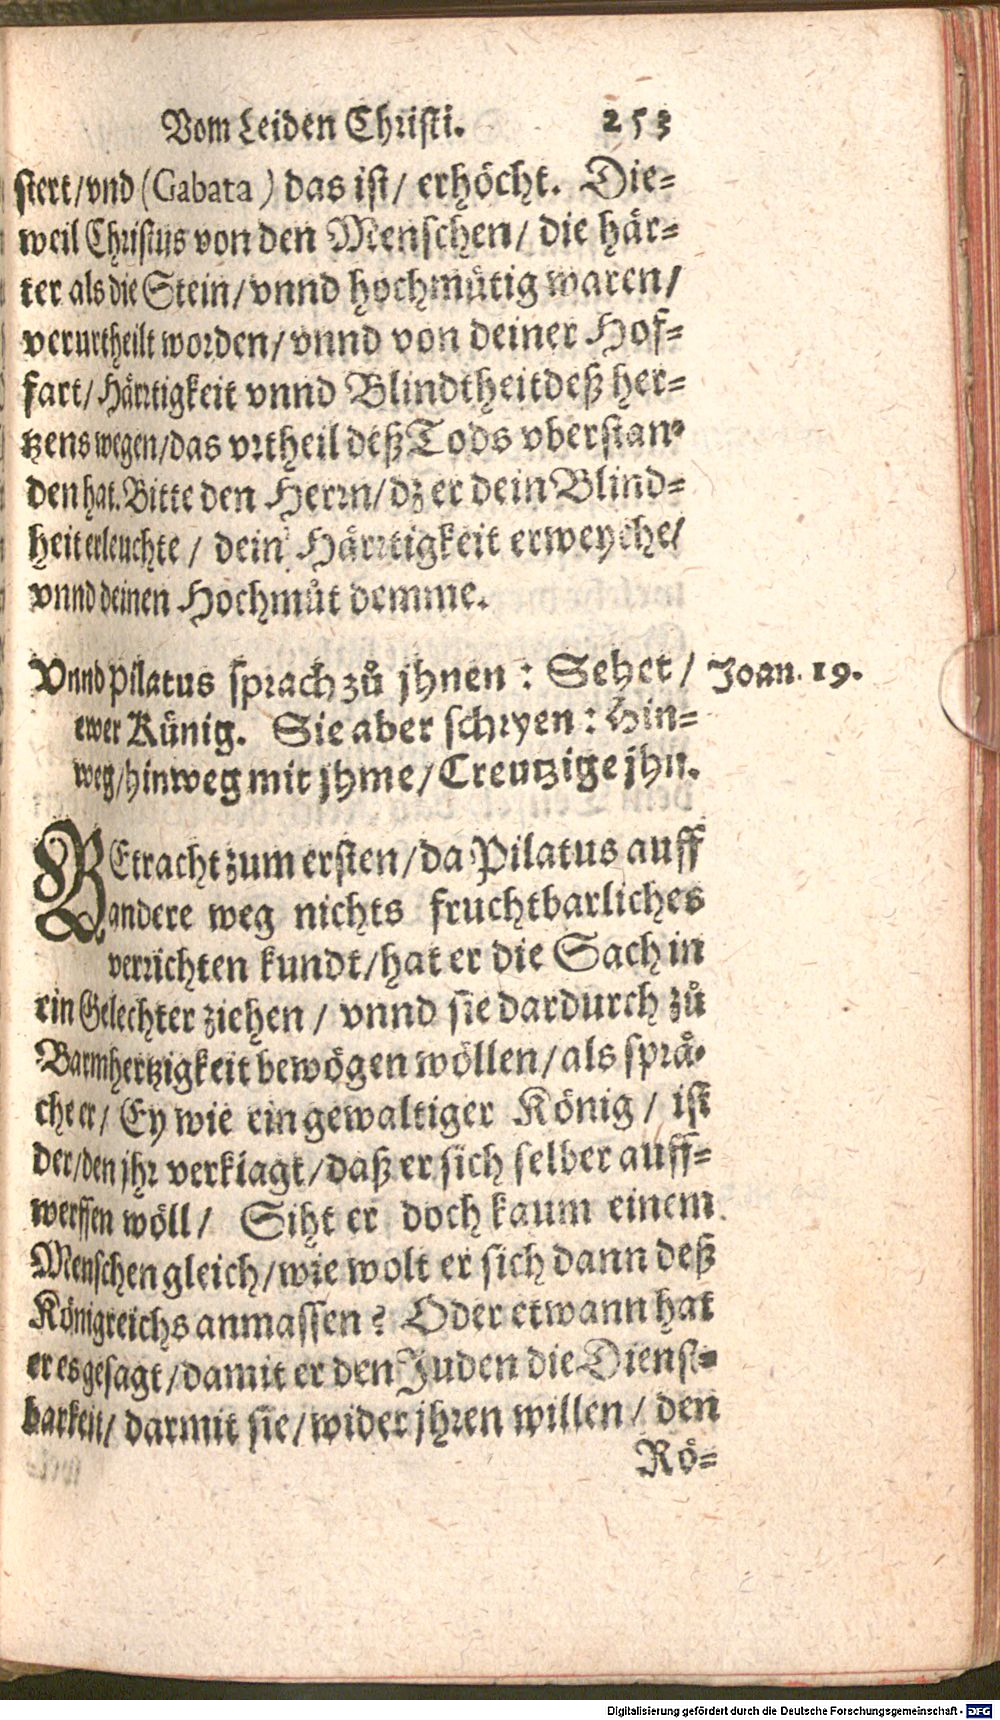 Vom Leiden Christi. 253
stert/vnd (Gabata) das ist/ erhöcht. Die=
weil Christus von den Menschen/ die här=
ter als die Stein/ vnnd hochmütig waren/
verurtheilt worden/ vnnd von deiner Hof=
fart/ Härrtigkeit vnnd Blindtheit deß her=
tzens wegen/das vrtheil deß Tods vberstan=
den hat. Bitte den Herrn/ dz er dein Blind=
heit erleuchte / dein Härrtigkeit erweyche/
vnnd deinen Hochmůt demme.
Vnnd Pilatus sprach zů jhnen : Sehet / Joan. 19.
ewer Künig. Sie aber schryen : Hin=
weg/hinweg mit jhme/ Creutzige jhn.
BEtracht zum ersten/ da Pilatus auff
andere weg nichts fruchtbarliches
verrichten kundt/ hat er die Sach in
ein Gelechter ziehen / vnnd sie dardurch zů
Barmhertzigkeit bewögen wöllen/ als sprä=
che er/ Ey wie ein gewaltiger König / ist
der/den jhr verklagt/ daß er sich selber auff=
werffen wöll / Siht er doch kaum einem
Menschen gleich/ wie wolt er sich dann deß
Königreichs anmassen? Oder etwann hat
er es gesagt/ damit er den Juden die Dienst=
barkeit/ darmit sie/ wider jhren willen / den
Rö=
Digitalisierung gefördert durch die Deutsche Forschungsgemeinschaft - DFG